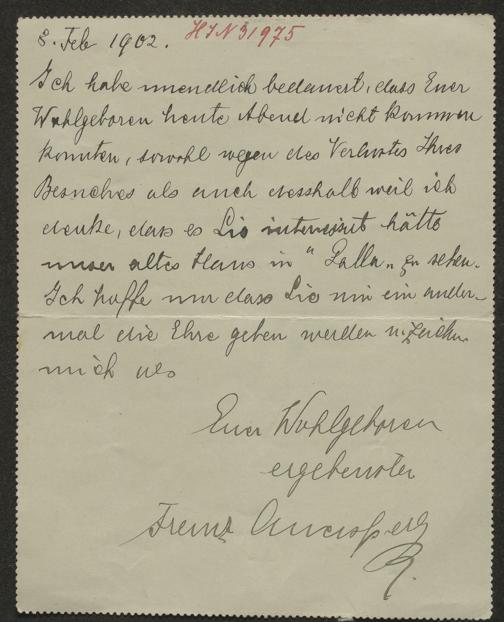 8. Feb 1902. HIN 31975
Ich habe unendlich bedauert, dass Euer
Wohlgeboren heute Abend nicht kommen
konnten, sowohl wegen des Verlustes Ihres
Besuches als auch desshalb weil ich
denke, dass es Sie interessirt hätte
unser altes Haus in " Galla „ zu sehen.
Ich hoffe nur dass Sie mir ein ander-
mal die Ehre geben werden u. zeichne
mich als
Euer Wohlgeboren
ergebenster
Franz Auersperg